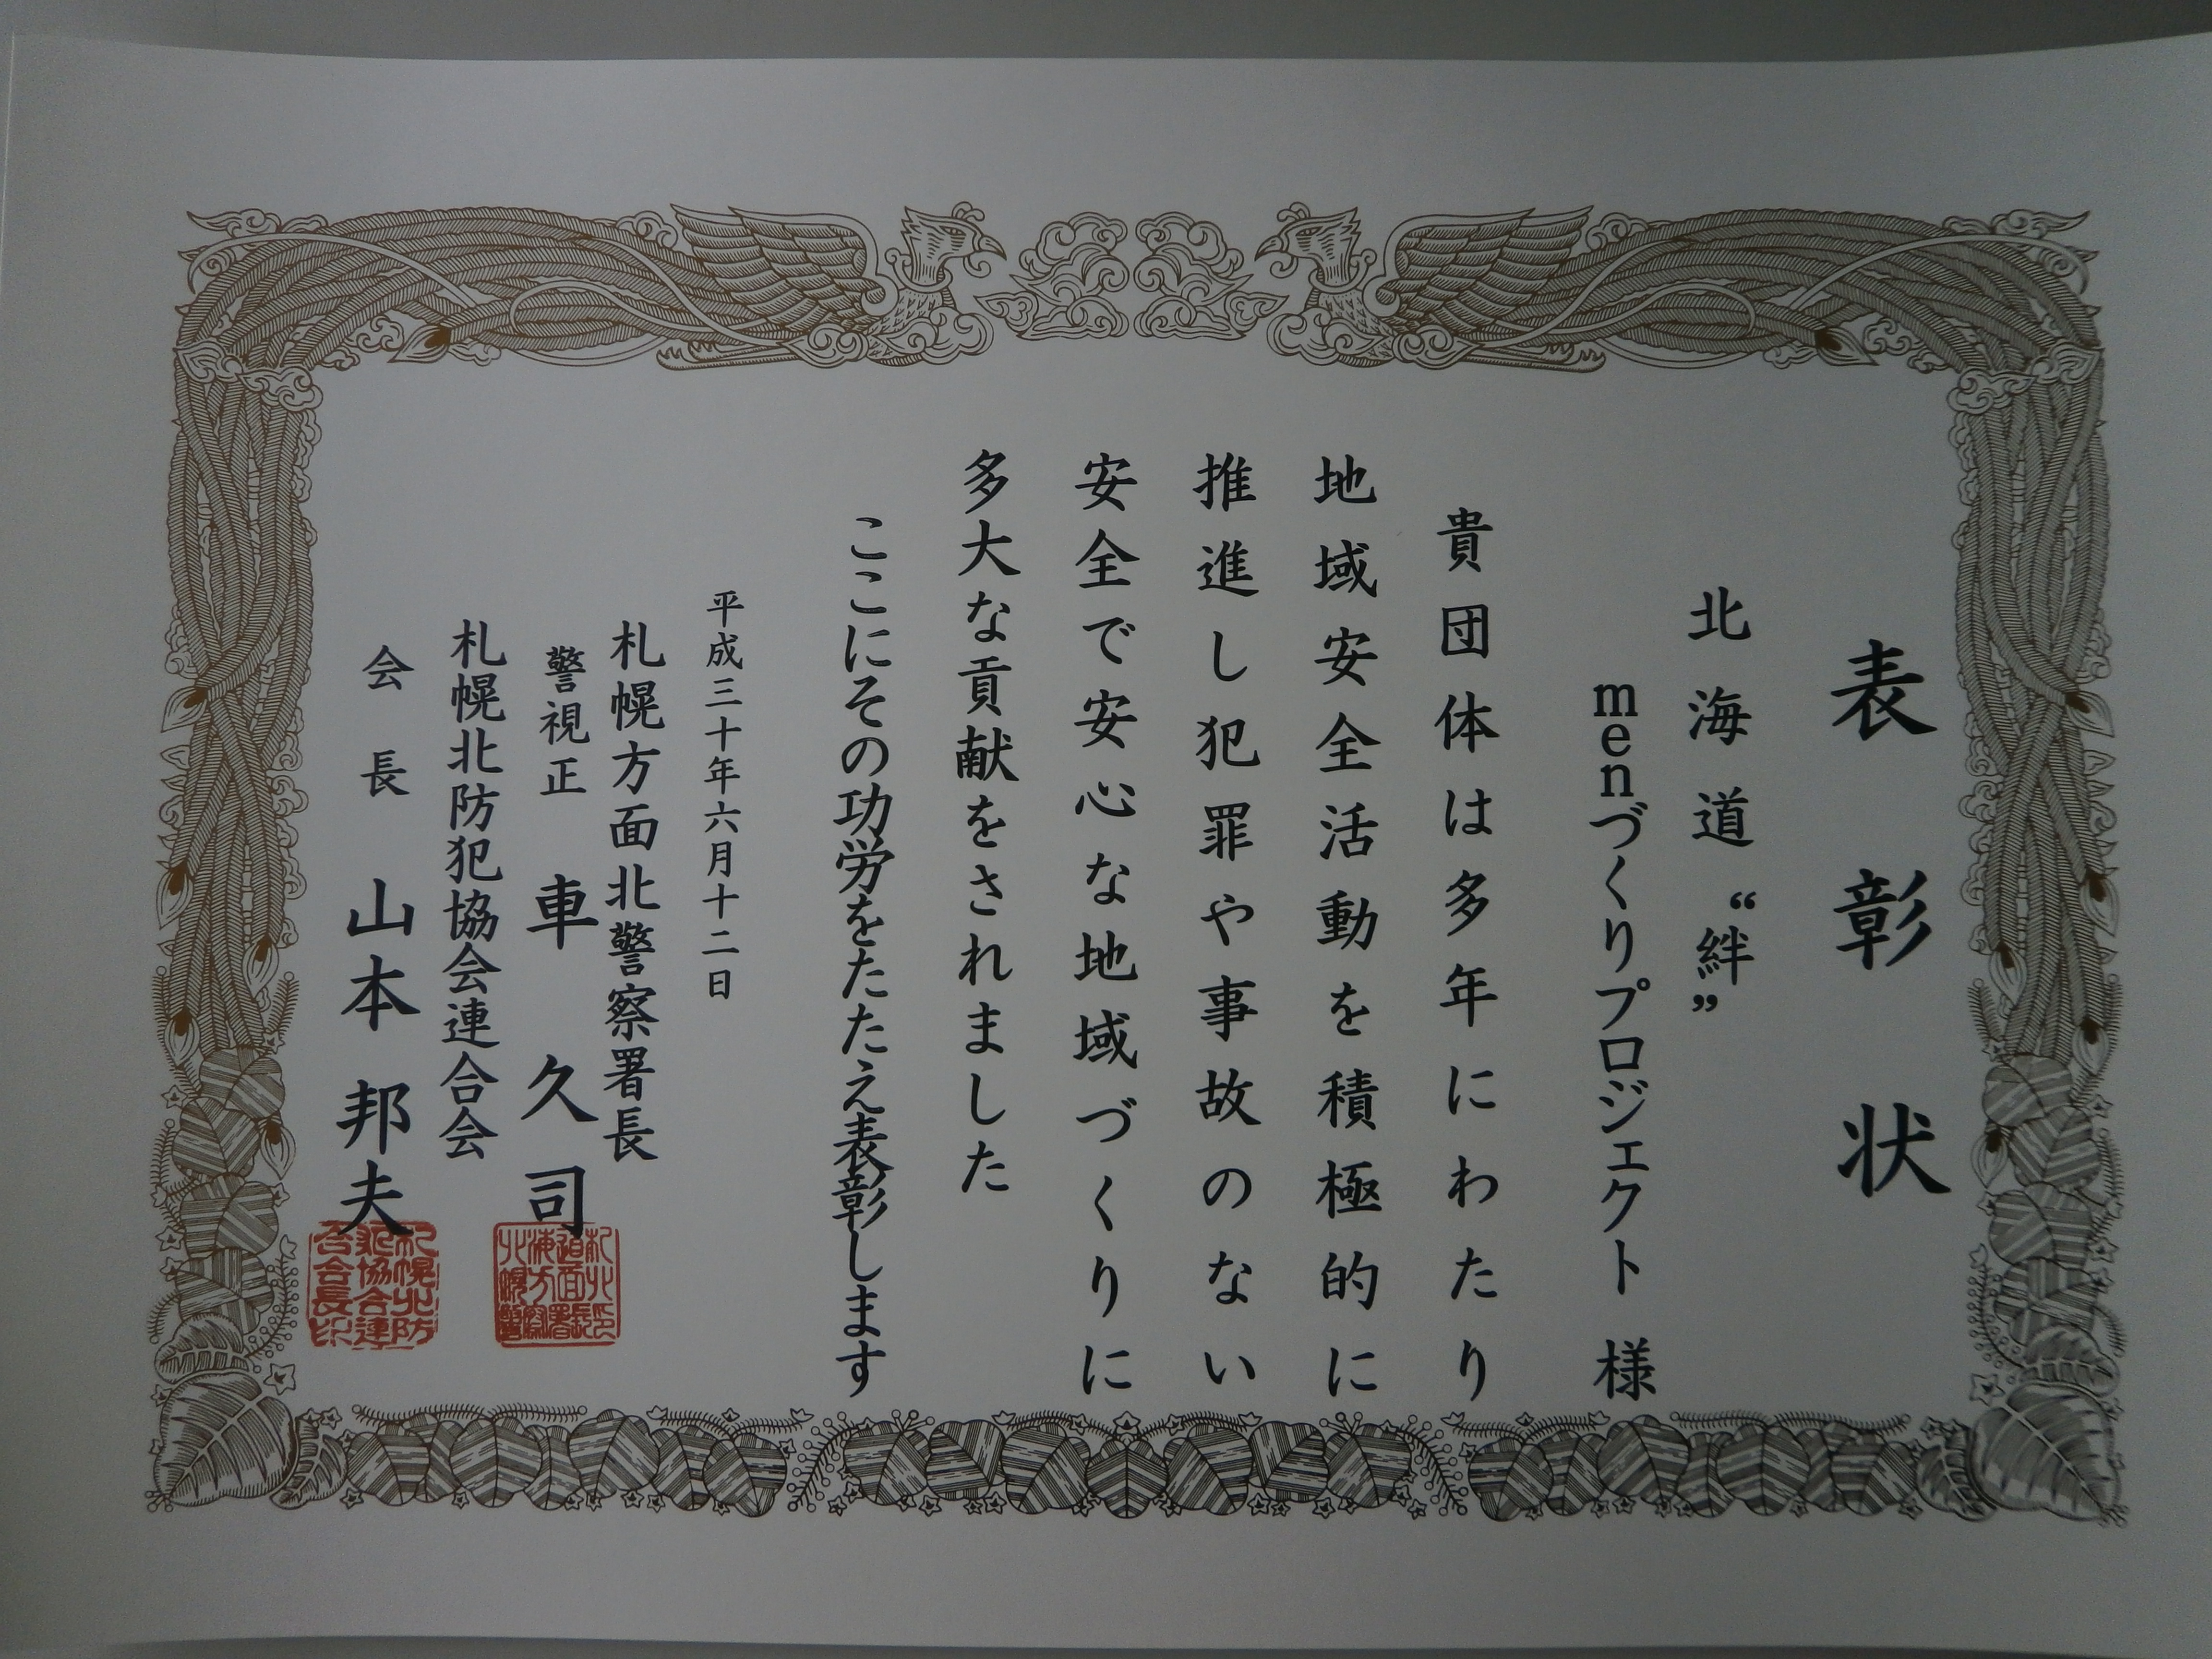 表彰状
北海道“絆”
menづくりプロジェクト 様
貴団体は多年にわたり
地域安全活動を積極的に
推進し犯罪や事故のない
安全で安心な地域づくりに
多大な貢献をされました
ここにその功労をたたえ表彰します
平成三十年六月十二日
札幌方面北警察署長
警視正 車 久司
札幌北防犯協会連合会
会長 山本邦夫